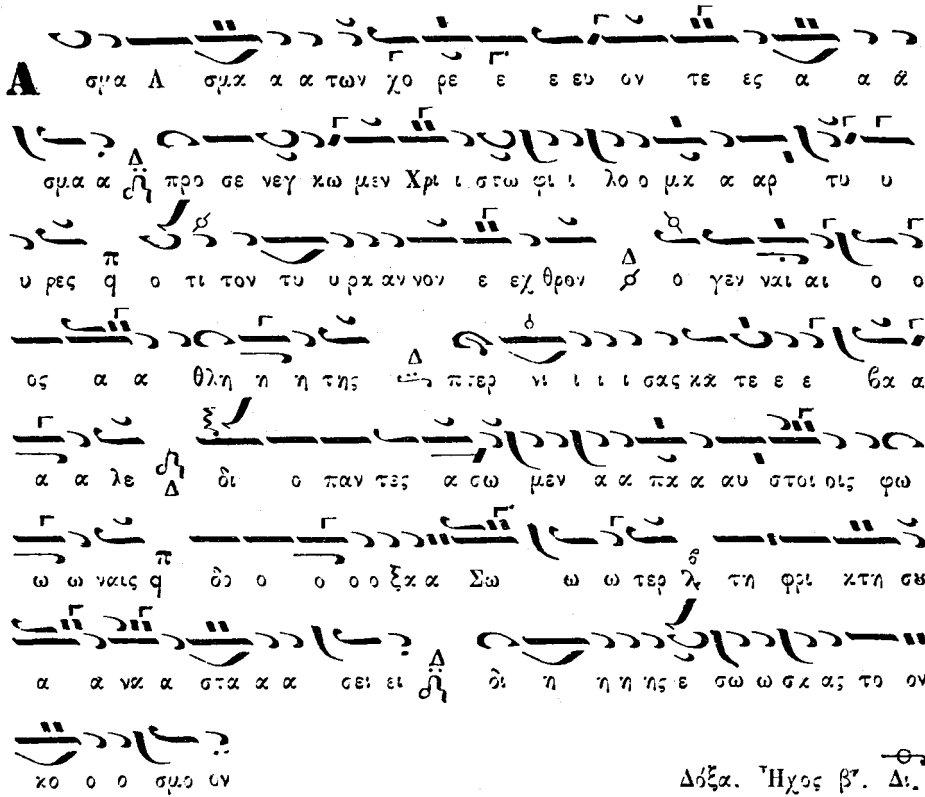 Α σμα Α σμα α α των χο ρε ε ε ευ ον τε ες α α α
σμα α Δ προ σε νεγ κω μεν Χρι ι στω φι ι λο ο μα α αρ τυ υ
υ ρες π q ο τι τον τυ υ ρα αν νον ε εχ θρον Δ ο γεν ναι αι ο ο
ος α α θλη η η της Δ πτερ νι ι ι ι σας κα τε ε ε βα α
α α λε Δ δι ο παν τες α σω μεν α α πα α αυ στοι οις φω
ω ω ναις π q δο ο ο ο ο ξα α Σω ω ω τερ λ τη φρι κτη σȣ
α α να α στα α α σει ει Δ δι η η η ης ε σω ω σα ας το ον
κο ο ο σμο ον
Δόξα. Ἦχος β'. Δι.